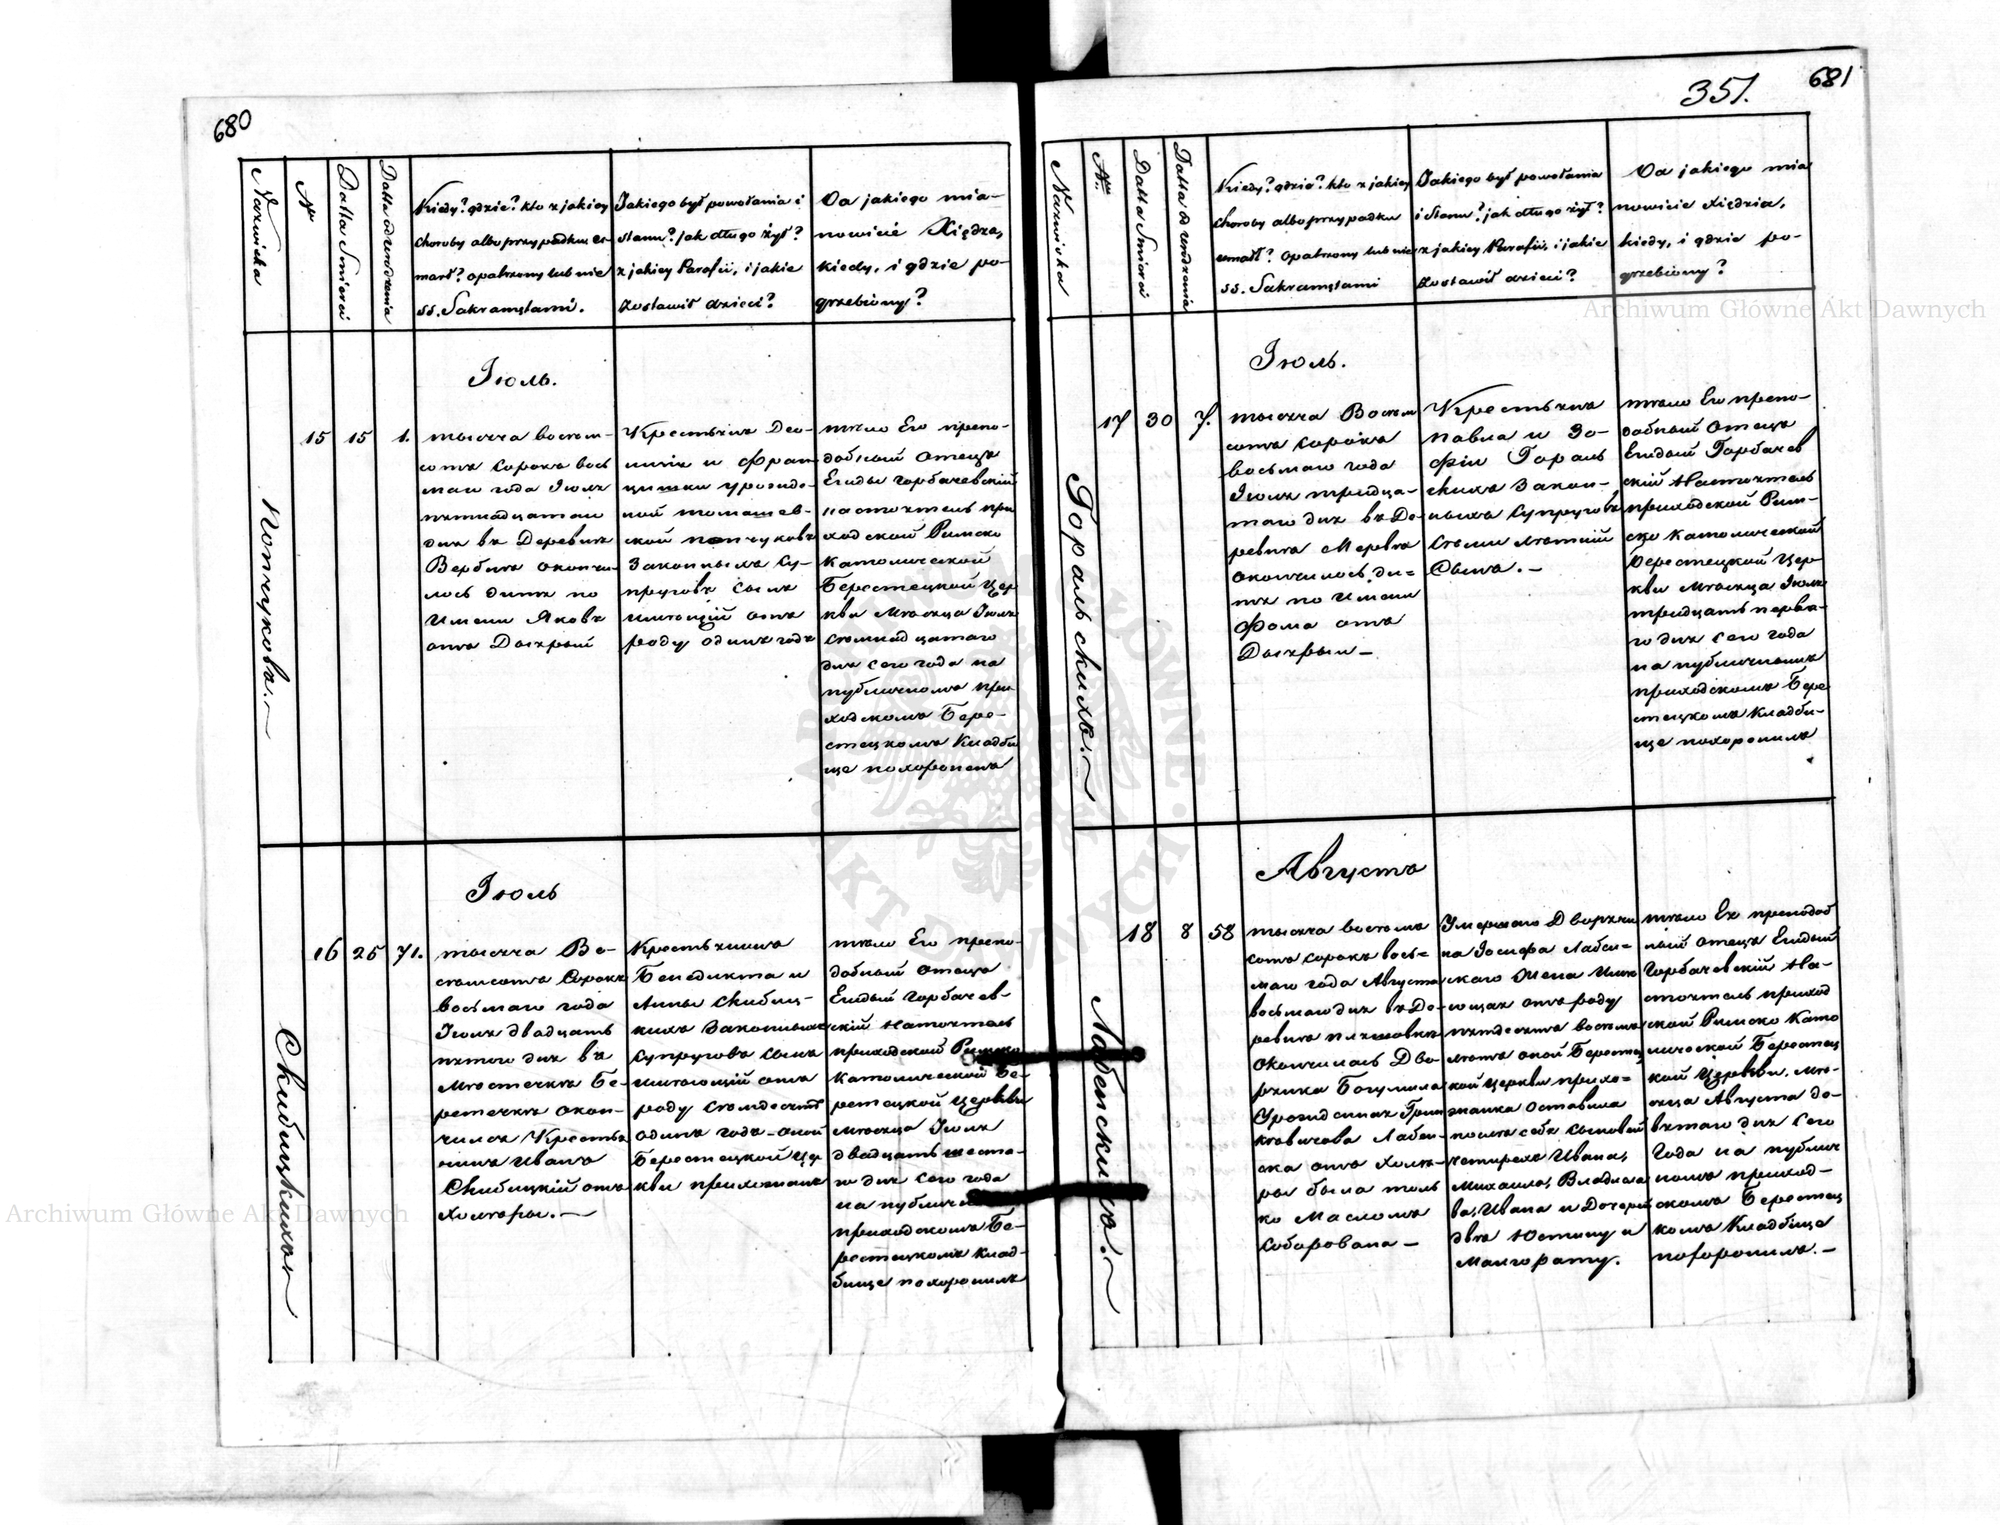 680
Nazwiska
Nr
Datta Smierci
Datta od rodzenia
Kiedy? gdzie? kto z jakiey
choroby albo przypadku u-
marł? opatrzony lub nie
SS. Sakramętami.
Jakiego był powołania i
stanu? jak długo żył?
z jakiey Parafii, i jakie
zostawił dzieci?
Od jakiego mia-
nowicie Xiędza,
kiedy, i gdzie po-
grzebiony?
Попчукова.
15
15
1.
Іюль.
тысяча восем-
сотъ сорокъ вось
маго года Іюля
пятнадцатаго
дня въ Деревнѣ
Вербнѣ окончи-
лось дитя по
имени Яковъ
отъ Дысхрыи
Крестьянъ Део-
низія и Фран-
цишки урожде-
ной томашев-
ской попчуковъ
Законныхъ Су-
пруговъ сынъ
имѣющій отъ
роду одинъ годъ
тѣло Его препо-
добный Отецъ
Егидый Горбачевскій
настоятель при
ходской Римско
Католической
Берестецкой Цер
кви Мѣсяца Іюля
семнадцатаго
дня сего года на
публичномъ при-
ходскомъ Бере-
стецкомъ Кладби
ще похоронилъ
Скибицкихъ
16
25
71.
Іюль
тысяча Во-
семсотъ Сорокъ
восьмаго года
Іюля двадцать
пятого дня въ
Мѣстечкѣ Бе-
речкѣ окон-
чился Крестья
нинъ Иванъ
Скибицкій отъ
Холеры.—
Крестьянинъ
Бенедикта и
Анны Скибиц-
кихъ Законныхъ
Супруговъ сынъ
имѣющій отъ
роду семдесятъ
одинъ годъ - оной
Берестецкой Цер
кви прихожанинъ
тѣло Его препо-
добный Отецъ
Егидый Горбачев-
скій Настоятель
приходской Римско
Католической Бе-
рестецкой Церкви
Мѣсяца Іюля
двадцать шесто-
го дня сего года
на публичномъ
приходскомъ Бе-
рестецкомъ Клад-
бище похоронилъ
681
351.
Nazwiska
Nr.
Datta Smierci
Datta od rodzenia
Kiedy? gdzie? kto z jakiey
choroby albo przypadku
umarł? opatrzony lub nie
SS. Sakramętami
Jakiego był powołania
i stanu? jak długo żył?
z jakiey Parafii, i jakie
zostawił dzieci?
Od jakiego mia
nowicie Xiędza,
kiedy, i gdzie po-
grzebiony?
Горальскихъ.
17
30
7.
Іюль.
тысяча Восем
сотъ сорокъ
восьмаго года
Іюля тридца-
таго дня въ Де-
ревнѣ Мервѣ
окончилось ди-
тя по имени
Фома отъ
Дысхрыи—
Крестьянъ
Павла и Зо-
фіи Гораль
скихъ Закон-
ныхъ Супруговъ
Семи лѣтній
Сынъ.—
тѣло Его препо-
добный Отецъ
Егидый Горбачев
скій Настоятель
приходской Рим-
ско Католической
Берестецкой Цер-
кви Мѣсяца Іюля
тридцать перва-
го дня сего года
на публичномъ
приходскомъ Бере
стецкомъ Кладби-
ще похоронилъ
Лабенскихъ.
18
8
58
Августъ
тысяча восемъ
сотъ сорокъ вось-
маго года Августа
восьмаго дня въ Де-
ревнѣ Пляшовкѣ
окончилась Дво
рянка Богумила
Урожденная Грин
кевичова Лабен-
ска отъ Холе-
ры была толь
ко Масломъ
Соборована—
Умершаго Дворяни
на Іосифа Лабен-
скаго Жена имѣ-
ющая отъ роду
пятдесятъ восемъ
лѣтъ оной Берестец
кой Церкви прихо-
жанка Оставила
послѣ себя сыновей
четырехъ Ивана,
Михаила, Владисла
ва, Ивана и Дочерей
двѣ Юстину и
Малгорату.
тѣло Ея преподоб
ный Отецъ Егидый
Горбачевскій На-
стоятель приход
ской Римско Като
лической Берестец
кой Церкви. Мѣ-
сяца Августа де-
вятаго дня сего
года на публич
номъ приход-
скомъ Берестец
комъ Кладбище
похоронилъ.—
Archiwum Główne Akt Dawnych
Archiwum Główne Akt Dawnych
ARCHIWUM GŁÓWNE AKT DAWNYCH